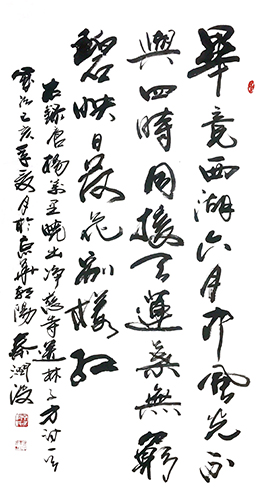 畢竟西湖六月中風光不
與四時同接天蓮葉無窮
碧映日荷花别樣紅
右録唐楊萬里曉出净慈寺送林子方詩一首
歲次己亥年夏月於京華朝陽 潤波